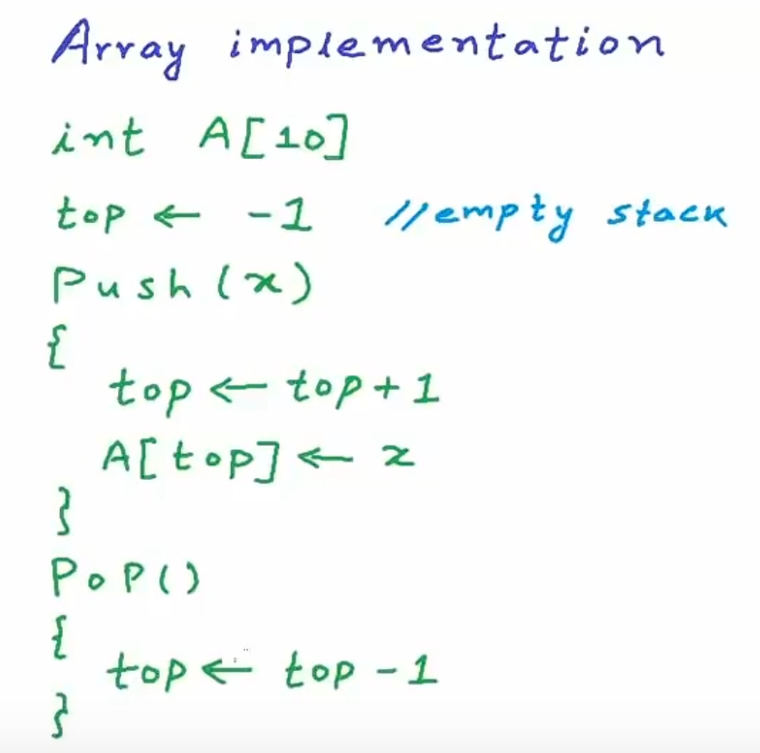 Array implementation
int A[10]
top ← -1 //empty stack
Push(x)
{
top ← top+1
A[top] ← x
}
Pop()
{
top ← top -1
}